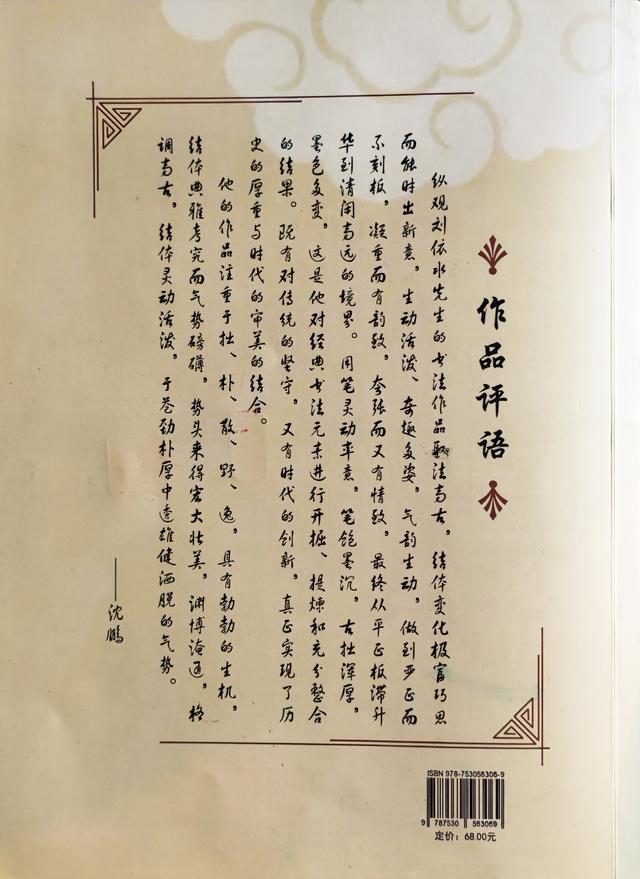 作品评语
纵观刘依水先生的书法作品取法高古，结体变化极富巧思
而能时出新意，生动活泼、奇趣多姿，气韵生动，做到严正而
不刻板，凝重而有韵致，夸张而又有情致，最终从平正板滞升
华到清闲高远的境界。用笔灵动率意，笔饱墨沉，古拙浑厚，
墨色多变，这是他对经典书法元素进行开掘、提炼和充分整合
的结果。既有对传统的坚守，又有时代的创新，真正实现了历
史的厚重与时代的审美的结合。
他的作品注重于拙、朴、散、野、逸，具有勃勃的生机，
结体典雅考究而气势磅礴，势头来得宏大壮美，渊博淹通，格
调高古，结体灵动活泼，于苍劲朴厚中透雄健洒脱的气势。
——沈鹏
ISBN 978-753056306-9
9 787530 563069
定价：68.00元